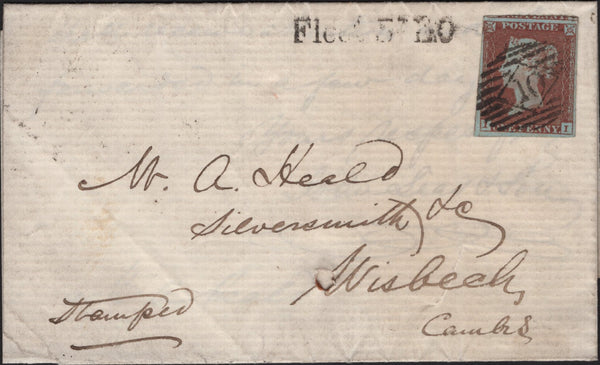 Fleet St B.O
POSTAGE
10
PENNY
I
Mr. A. Heald
Silversmith &c
Wisbech
Cambs
Stamped